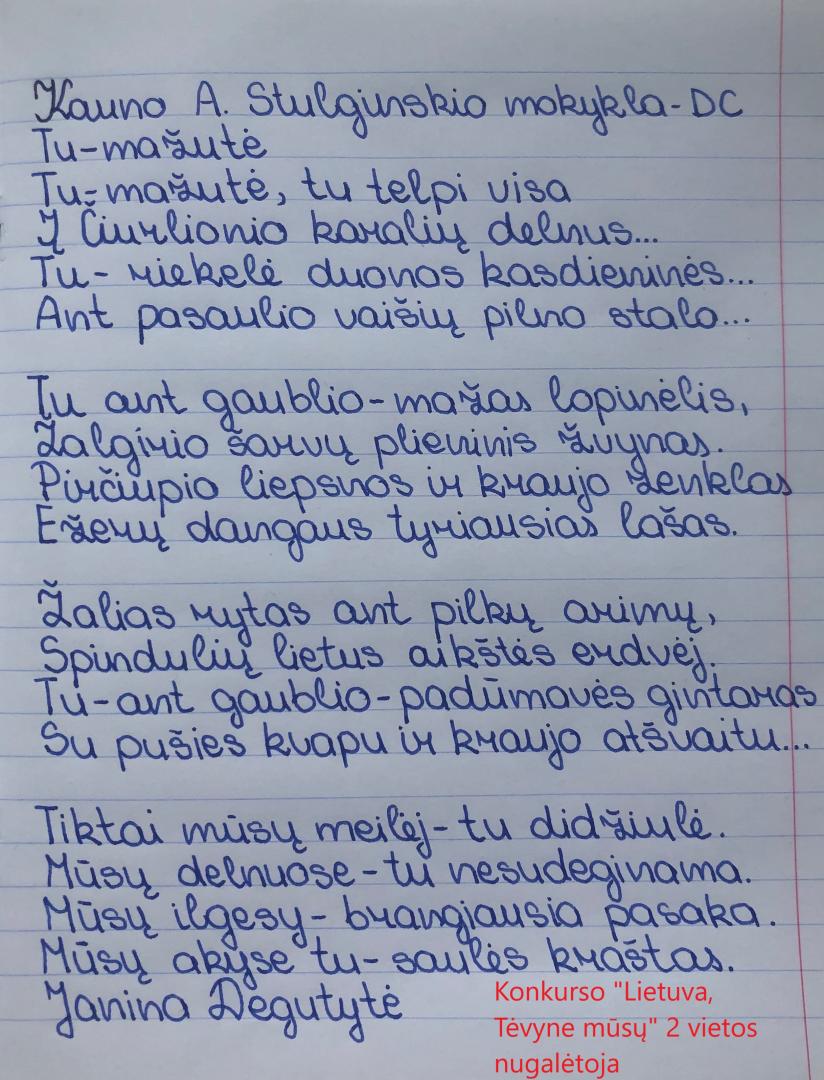 Kauno A. Stulginskio mokykla-DC
Tu-mažutė
Tu-mažutė, tu telpi visa
Į Čiurlionio karalių delnus...
Tu- riekelė duonos kasdieninės...
Ant pasaulio vaišių pilno stalo...
Tu ant gaublio-mažas lopinėlis,
Žalgirio šarvų plieninis žvynas.
Pirčiupio liepsnos ir kraujo ženklas
Ežerų dangaus tyriausias lašas.
Žalias rytas ant pilkų arimų,
Spindulių lietus aikštės erdvėj.
Tu-ant gaublio-padūmavęs gintaras
Su pušies kvapu ir kraujo atšvaitu...
Tiktai mūsų meilėj-tu didžiulė.
Mūsų delnuose-tu nesudeginama.
Mūsų ilgesy- brangiausia pasaka.
Mūsų akyse tu-saulės kraštas.
Janina Degutytė
Konkurso "Lietuva,
Tėvyne mūsų" 2 vietos
nugalėtoja